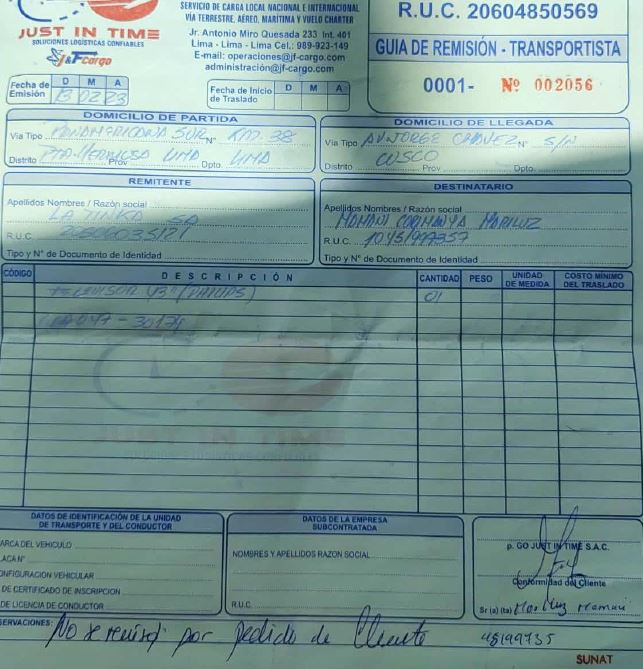 JUST IN TIME
SOLUCIONES LOGÍSTICAS CONFIABLES
J&F Cargo
SERVICIO DE CARGA LOCAL NACIONAL E INTERNACIONAL
VÍA TERRESTRE, AÉREO, MARÍTIMA Y VUELO CHARTER
Jr. Antonio Miro Quesada 233 Int. 401
Lima - Lima - Lima Cel.: 989-923-149
E-mail: operaciones@jf-cargo.com
administración@jf-cargo.com
R.U.C. 20604850569
GUIA DE REMISIÓN - TRANSPORTISTA
0001- Nº 002056
Fecha de Emisión D M A
13 02 23
Fecha de Inicio de Traslado D M A
DOMICILIO DE PARTIDA
Vía Tipo PANAMERICANA SUR Nº KM. 38
Distrito PTA. HERMOSA Prov LIMA Dpto. LIMA
DOMICILIO DE LLEGADA
Vía Tipo AV. JORGE CHAVEZ Nº S/N
Distrito CUSCO Prov Dpto.
REMITENTE
Apellidos Nombres / Razón social
LA TINKA SA
R.U.C.
Tipo y Nº de Documento de Identidad
DESTINATARIO
Apellidos Nombres / Razón social
MAMANI MARILUZ
R.U.C.
Tipo y Nº de Documento de Identidad
CÓDIGO DESCRIPCIÓN CANTIDAD PESO UNIDAD DE MEDIDA COSTO MÍNIMO DEL TRASLADO
TELEVISOR 43" (PHILIPS) 01
JUST IN TIME
DATOS DE IDENTIFICACIÓN DE LA UNIDAD DE TRANSPORTE Y DEL CONDUCTOR
ARCA DEL VEHICULO
LACA Nº
ONFIGURACION VEHICULAR
DE CERTIFICADO DE INSCRIPCION
DE LICENCIA DE CONDUCTOR
DATOS DE LA EMPRESA SUBCONTRATADA
NOMBRES Y APELLIDOS RAZON SOCIAL
R.U.C.
p. GO JUST IN TIME S.A.C.
Conformidad del Cliente
Sr (a) (ta) Mariluz Mamani
SERVACIONES: No se revisó por pedido de Cliente 45199735
SUNAT